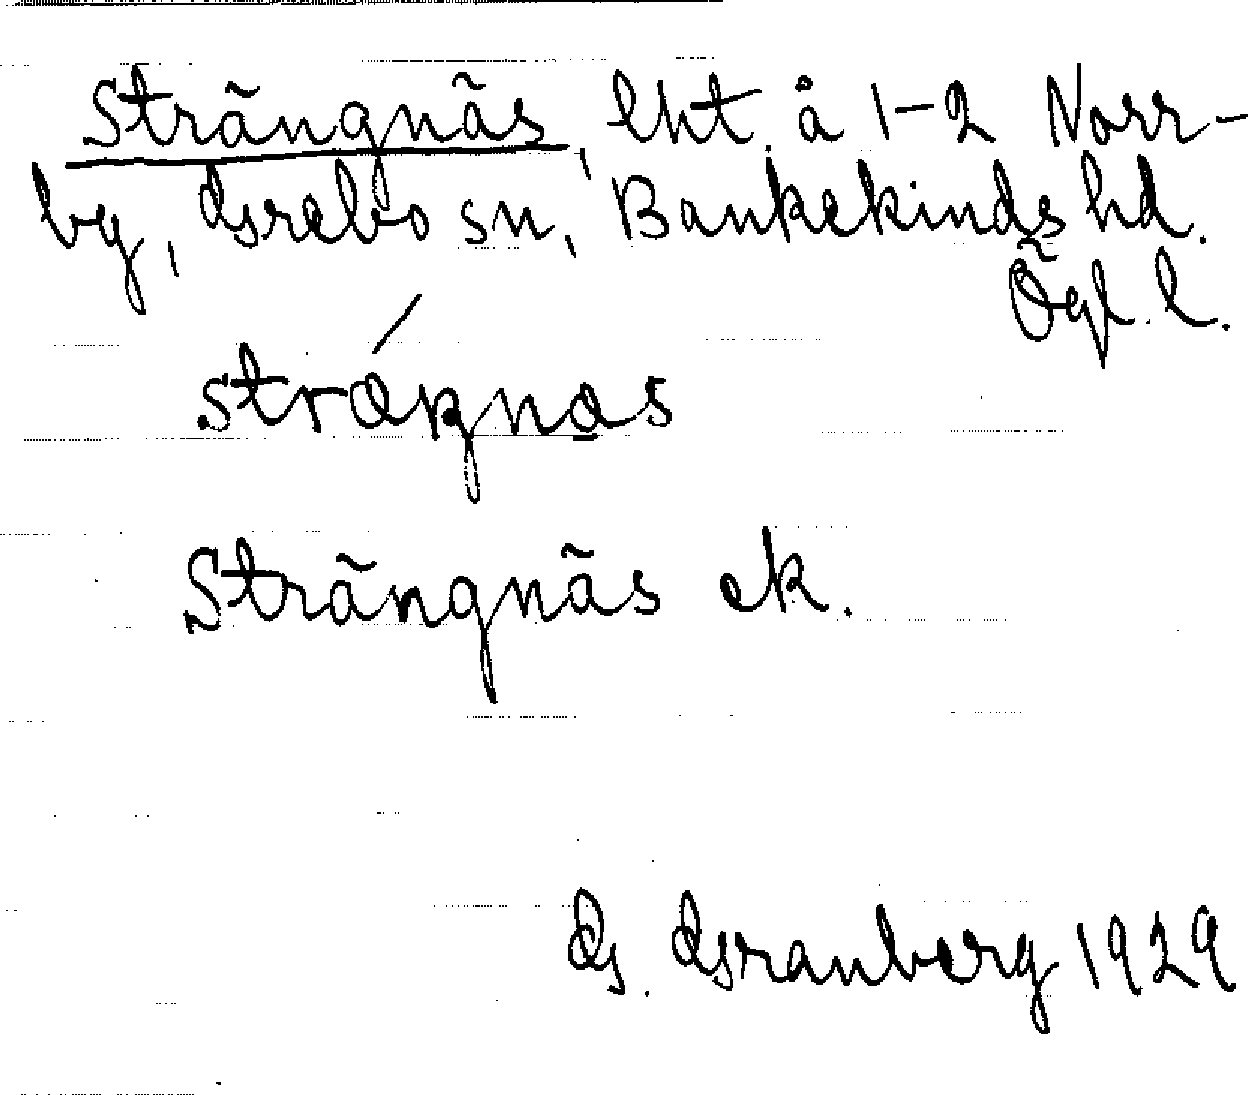 Strängnäs, lht. å 1-2 Norr-
by, Grebo sn, Bankekinds hd.
Ögl. l.
Strängnäs ek.
G. Granberg 1929